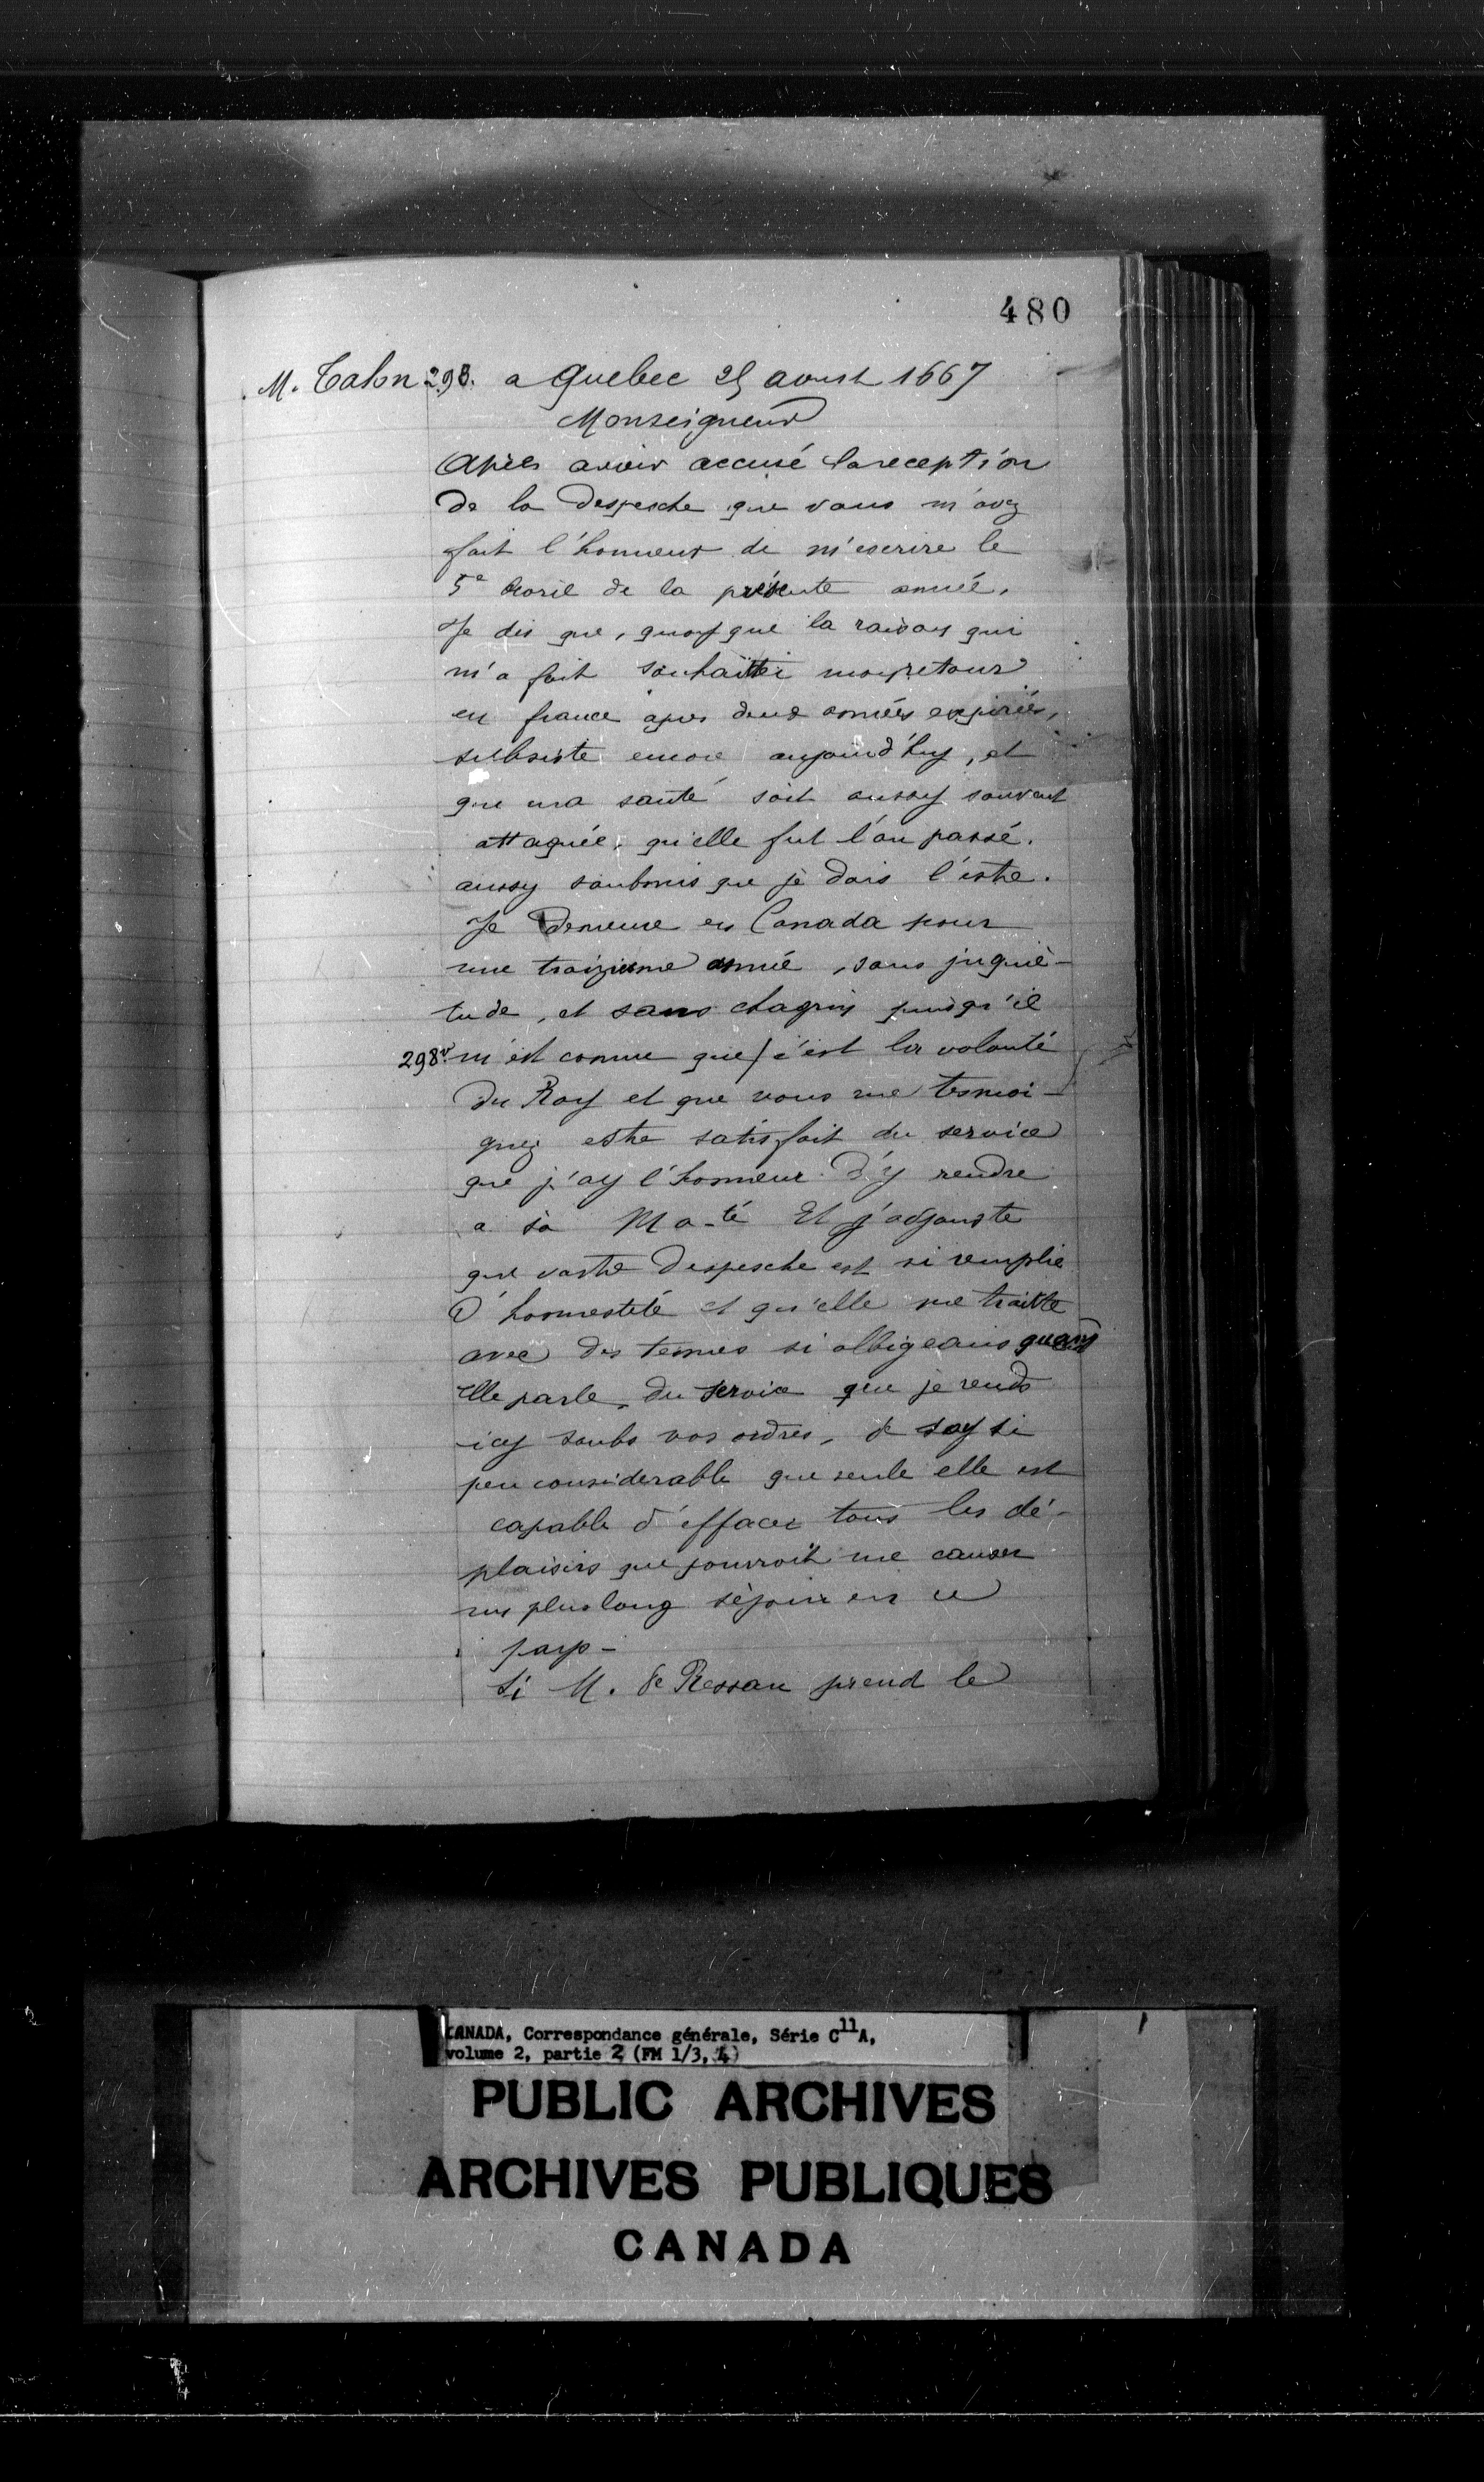 480
M. Talon 298. a Quebec 25 aoust 1667
Monseigneur
Après avoir accusé la reception
de la despesche que vous m'avez
fait l'honneur de m'escrire le
5e Avril de la présente année,
Je dis que, quoyque la raison qui
m'a fait souhaitter mon retour
en france apres deux années expirées,
subsiste encore aujourd'huy, et
que ma santé soit aussy souvent
attaquée, qu'elle fut l'an passé.
aussy soubmis que je dois l'estre.
Je Demeure en Canada pour
une troizieme année, sans inquié-
tude, et sans chagrin puisqu'il
298v. m'est connu que / c'est la volonté
du Roy et que vous me tesmoi-
gnez estre satisfait du service
que j'ay l'honneur d'y rendre
a sa Ma-té Et j'adjouste
que vostre despesche est si remplie
d'honnesteté et qu'elle me traitte
avec des termes si obligeans quand
Elle parle du service que je rends
icy soubs vos ordres, de soy si
peu considerable que seule elle est
capable d'effacer tous les dé-
plaisirs que pourroit me causer
un plus long séjour en ce
pays -
Si M. de Ressan prend le
CANADA, Correspondance générale, Série C11A,
volume 2, partie 2 (FM 1/3, 4)
PUBLIC ARCHIVES
ARCHIVES PUBLIQUES
CANADA